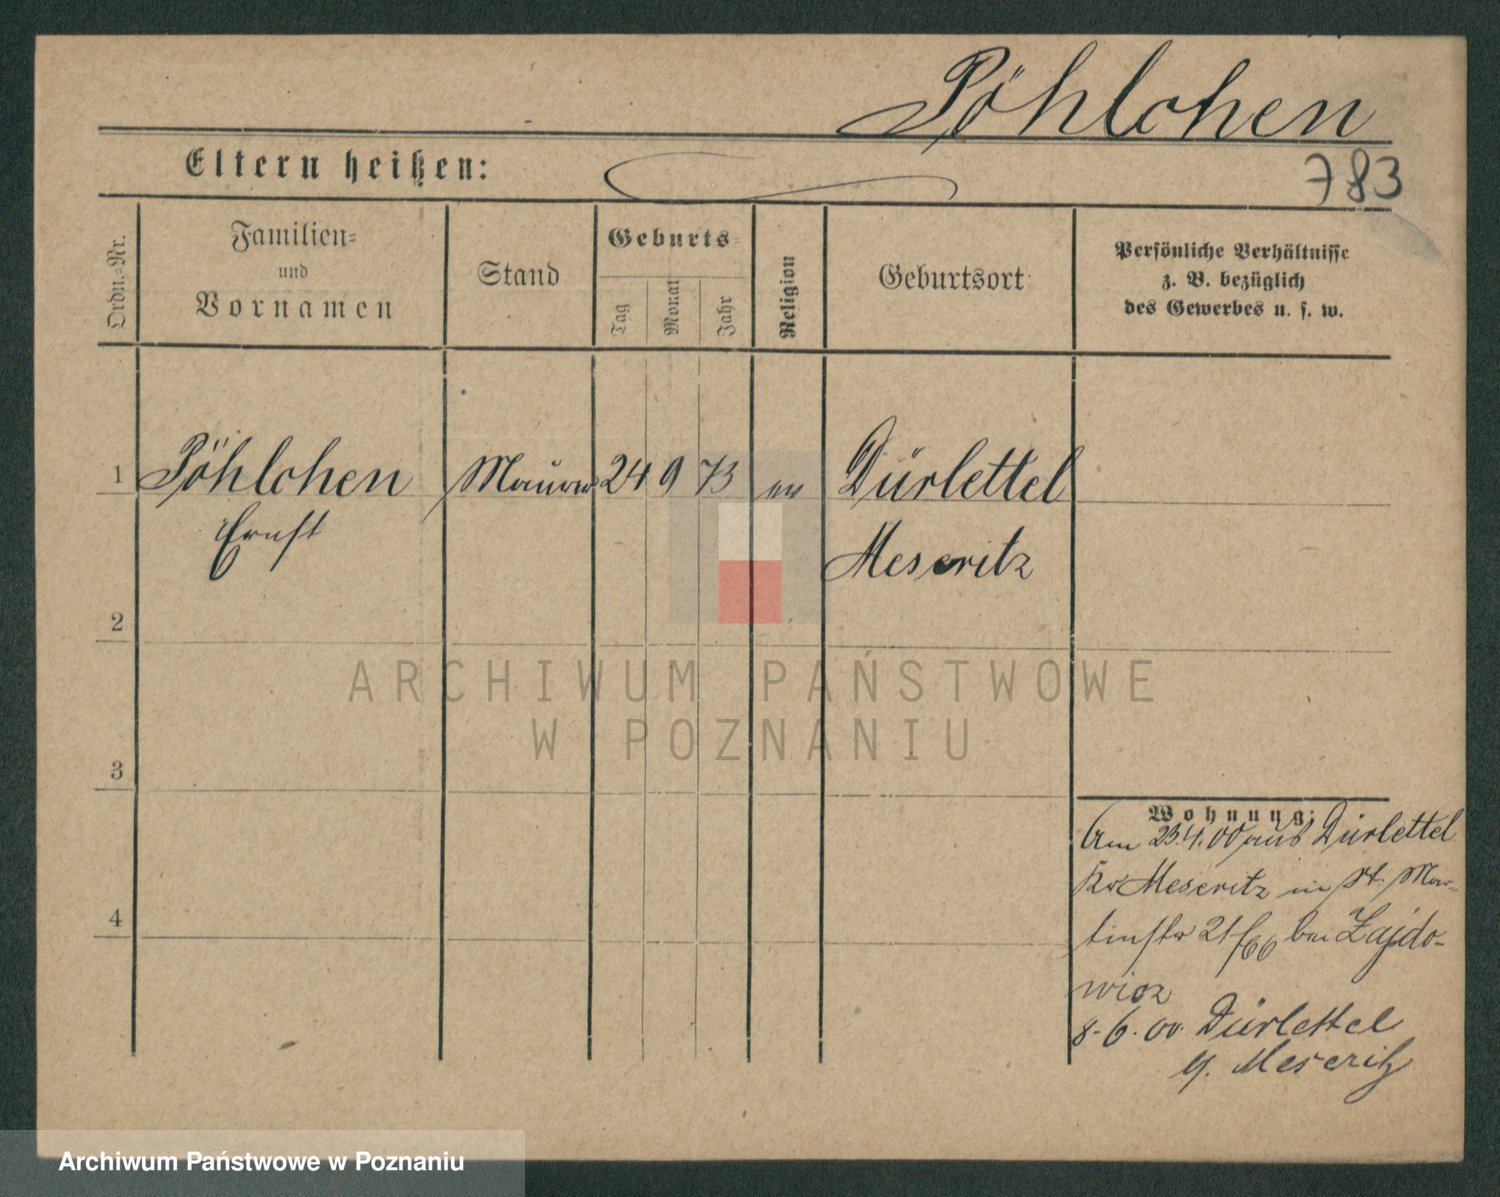 Pöhlchen
Eltern heißen:
783
Ordn.-Nr.
Familien-
und
Vornamen
Stand
Geburts-
Tag
Monat
Jahr
Religion
Geburtsort
Persönliche Verhältnisse
z. B. bezüglich
des Gewerbes u. s. w.
1 Pöhlchen Maurer 24 9 73 ev Dürlettel
Ernst
Meseritz
2
3
4
ARCHIWUM PAŃSTWOWE
W POZNANIU
Wohnung:
Am 23.4.00 aus Dürlettel
Kr Meseritz in St. Mar-
tinstr 21/66 bei Zajdo-
wicz
8.6.00 Dürlettel
Meseritz
Archiwum Państwowe w Poznaniu